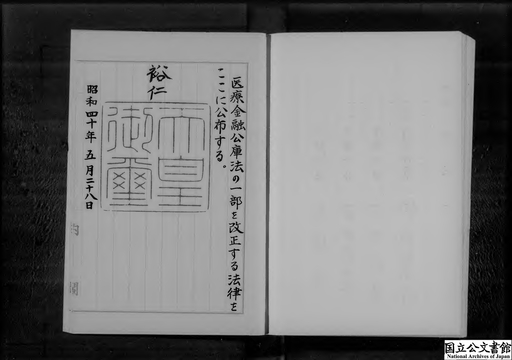 医療金融公庫法の一部を改正する法律を
ここに公布する。
裕仁
天皇
御璽
昭和四十年五月二十八日
国立公文書館
National Archives of Japan